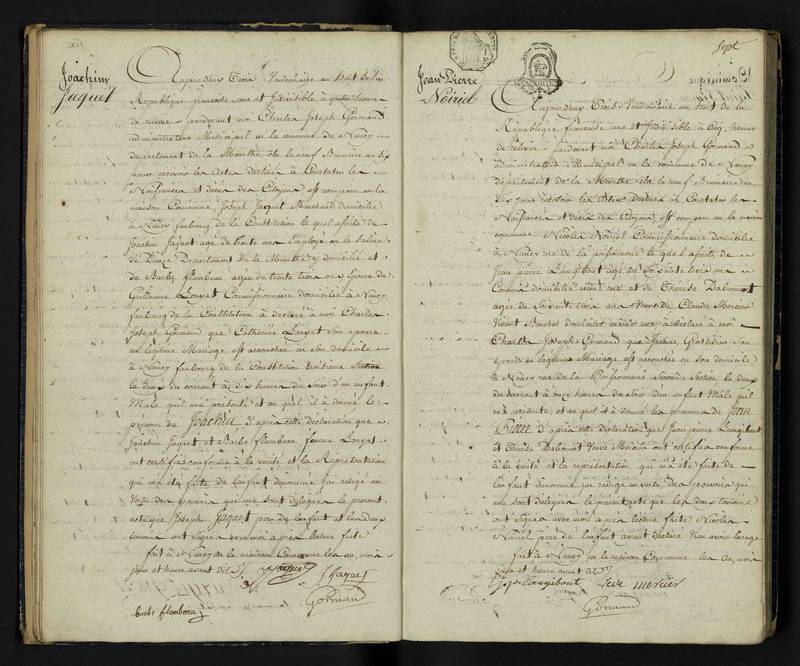 Joachim
Jaquet
Aujourdhuy Trois Vendemiaire an huit de la
République française une et Indivisible à quatre heures
de relevée pardevant moi Charles Joseph Gormand
administrateur Municipal en la commune de Nancy
departement de la Meurthe élu le neuf Brumaire an six
pour recevoir les Actes destinés à Constater les
Naissances et décès des Citoyens est comparu en la
maison Commune Joseph Jaquet Marchand domicilié
à Nancy faubourg de la Constitution lequel assisté de
Joachim Jaquet agé de trente ans Employé en la Saline
de Dieuze Departement de la Meurthe y domicilié et
de Barbe flambeau agée de trente trois ans Epouse de
Guillaume Louyat Commissionnaire domiciliée à Nancy
faubourg de la Constitution à déclaré à moi Charles
Joseph Gormand que Catherine Louyat Son épouse
en legitime Mariage, est accouchée en Son domicile
à Nancy faubourg de la Constitution troisieme Section
le deux du courant à dix heures du Soir d'un enfant
Mâle qu'il m'a présenté et au quel il à donné le
prénom de Joachim d'après cette déclaration que
Joachim Jaquet et Barbe flambeau femme Louyat
ont certifiés conforme à la vérité et la Représentation
qui m'a été faite de L'enfant denommé J'ai rédigé en
Vertu des pouvoirs qui me sont délégués le présent
acte que Joseph Jaquet pere de L'enfant et les deux
temoins ont Signé avec moi après lecture faite
fait à Nancy en la maison Commune les an, mois
jour et heure avant dits
Jaquet J Jaquet
Gormand
barbe flambeau
Sept
Jean Pierre
Noirel
Aujourdhuy Trois Vendemiaire an huit de la
République française une et Indivisible à Cinq heures
de relevée pardevant moi Charles Joseph Gormand
administrateur Municipal en la commune de Nancy
departement de la Meurthe élu le neuf Brumaire an
Six pour recevoir les Actes destinés à Constater les
Naissances et décès des Citoyens, est comparu en la maison
commune Nicolas Noirel Commissionnaire domicilié
à Nancy rue de la poissonnerie le quel assisté de
Jean pierre Langibout agé de Soixante trois ans
domicilié même rue et de Therese Dabouot
agée de Soixante trois ans Veuve de Claude Mercier
Vivant Boucher domiciliée même rue à déclaré à moi
Charles Joseph Gormand que françoise Son
épouse en legitime Mariage est accouchée en Son domicile
à Nancy rue de la Poissonnerie Seconde Section le deux
du courant à onze heures du Soir d'un enfant Mâle qu'il
m'a présenté et au quel il a donné les prénoms de Jean
Pierre d'après cette déclaration que Jean pierre Langibout
et Therese Dabouot Veuve Mercier ont certifiés conforme
à la vérité et la représentation qui m'a été faite de
L'enfant denommé J'ai rédigé en vertu des pouvoirs qui
me sont délégués le présent acte que les deux temoins
ont Signé avec moi après lecture faite Nicolas
Noirel pere de L'enfant ayant déclaré n'en avoir l'usage
fait à Nancy en la maison Commune les an, mois
jour et heure avant dits
Jp Langibout Veve mercier
Gormand